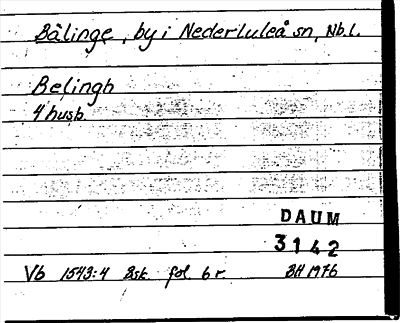 Bälinge, by i Nederluleå sn, Nb.l.
Belingh
4 husb.
DAUM
3142
Vb 1543:4 Bsk. fol. 6 r. BH 1976